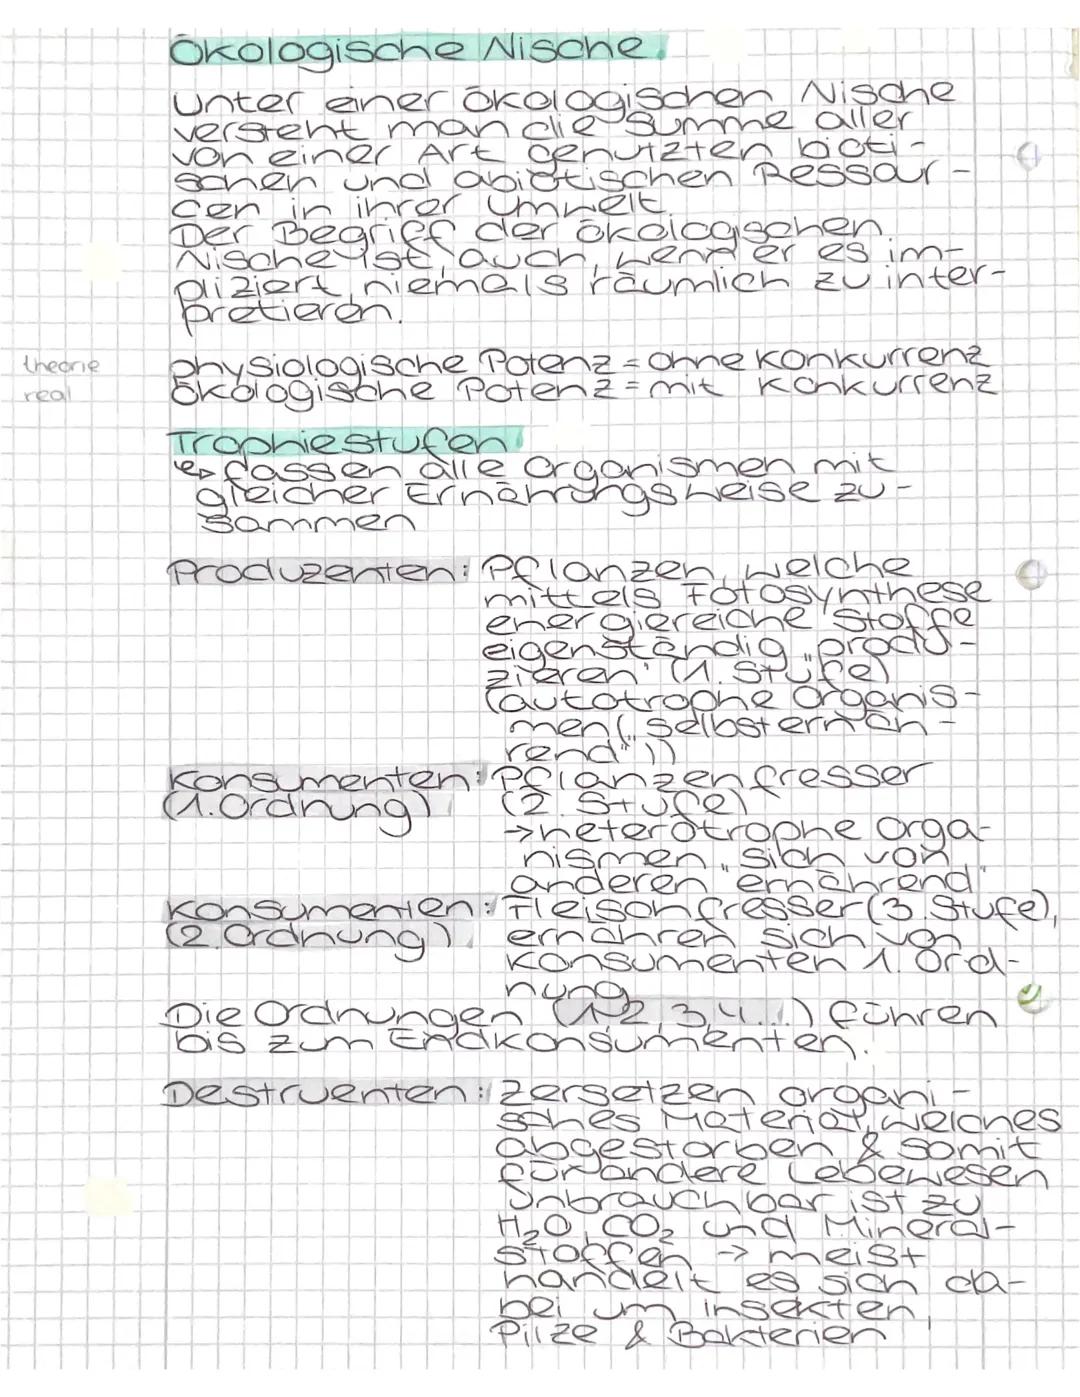 Ökologische Nische
Unter einer ökologischen Nische
versteht man die Summe aller
von einer Art genutzten bioti-
schen und abiotischen Ressour-
cen in ihrer Umwelt.
Der Begriff der ökologischen
Nische ist, auch wenn er es im-
pliziert, niemals räumlich zu inter-
pretieren.
theorie physiologische Potenz = ohne Konkurrenz
real ökologische Potenz = mit Konkurrenz
Trophiestufen
↳ fassen alle Organismen mit
gleicher Ernährungsweise zu-
sammen
Produzenten: Pflanzen, welche
mittels Fotosynthese
energiereiche Stoffe
eigenständig „produ-
zieren" (1. Stufe)
(autotrophe Organis-
men („selbsternäh-
rend"))
Konsumenten: Pflanzenfresser
(1. Ordnung) (2. Stufe)
→ heterotrophe Orga-
nismen „sich von
anderen ernährend"
Konsumenten: Fleischfresser (3. Stufe),
(2. Ordnung) ernähren sich von
Konsumenten 1. Ord-
nung
Die Ordnungen (1,2,3,4...) führen
bis zum Endkonsumenten.
Destruenten: zersetzen organi-
sches Material, welches
abgestorben & somit
für andere Lebewesen
unbrauchbar ist zu
H₂O, CO₂ und Mineral-
stoffen → meist
handelt es sich da-
bei um Insekten,
Pilze & Bakterien